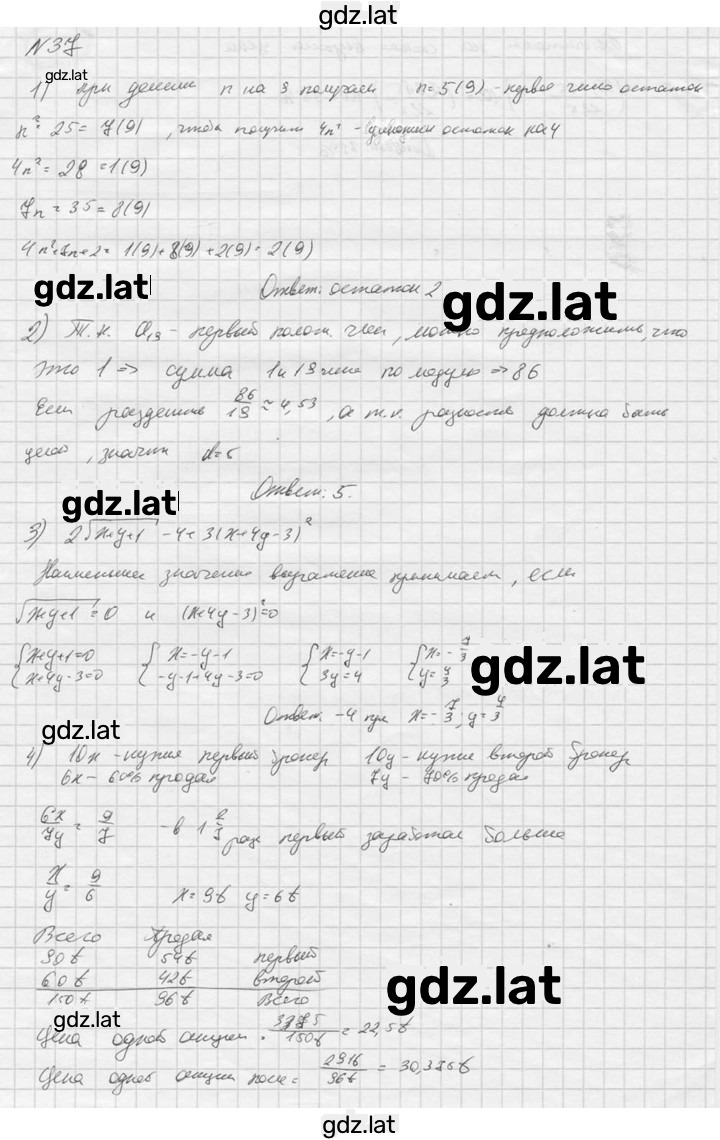 gdz.lat
N37
1) при делени n на 9 получаем n=5(9) - первое число остаток
n²= 25 = 7(9) , чтобы получить 4n² - умножим остаток на 4
4n² = 28 = 1(9)
7n = 35 = 8(9)
4n²+7n+2 = 1(9)+8(9)+2(9) = 2(9)
Ответ: остаток 2
gdz.lat
gdz.lat
2) Т.к. a₁₉ - первый полож. член, можно предположить, что
это 1 => сумма 1 и 19 члена по модулю => 86
Если разделить 86/19 ≈ 4,53 , а т.к. разность должна быть
целой, значит d=5
Ответ: 5.
gdz.lat
3) 2√x+y+1 - 4 + 3(x+4y-3)²
Наименьшее значение выражение принимает, если
√x+y+1 = 0 и (x+4y-3)²=0
{x+y+1=0 {x=-y-1 {x=-y-1 {x=-7/3
{x+4y-3=0 {-y-1+4y-3=0 {3y=4 {y=4/3
gdz.lat
Ответ: -4 при x=-7/3; y=4/3
gdz.lat
4) 10x - купил первый брокер 10y - купил второй брокер
6x - 60% продал 7y - 70% продал
6x/7y = 9/7 - в 1 2/7 раз первый заработал больше
x/y = 9/6 x=9t y=6t
Всего Продал
90t 54t первый
60t 42t второй
150t 96t Всего
gdz.lat
gdz.lat
Цена одной акции = 3375/150t = 22,5t
Цена одной акции после = 2916/96t = 30,375t
gdz.lat